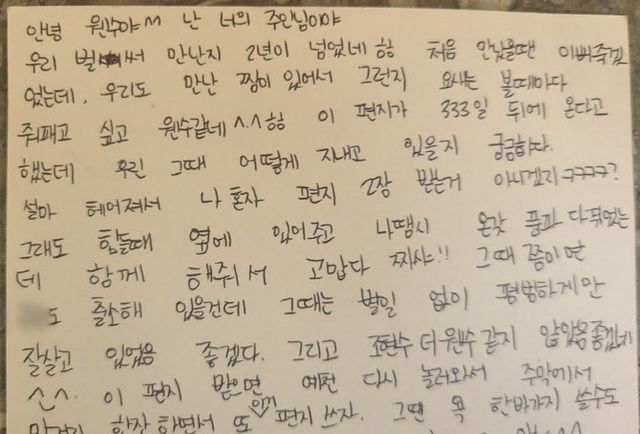 안녕 원수야 ^^ 난 너의 주인님이야
우리 벌써 만난지 2년이 넘었네 항 처음 만났을땐 이뻐죽겠
었는데, 우리도 만난 찜이 있어서 그런지 요새는 볼때마다
줘패고 싶고 원수같네 ^.^ 항 이 편지가 333일 뒤에 온다고
했는데 우린 그때 어떻게 지내고 있을지 궁금하다.
설마 헤어져서 나 혼자 편지 2장 받는거 아니겠지ㅋㅋㅋㅋ?
그래도 힘들때 옆에 있어주고 나땜시 온갖 풍파 다겪었는
데 함께 해줘서 고맙다 짜샤!! 그때쯤이면
도 출소해 있을건데 그때는 별일 없이 평범하게만
잘살고 있었음 좋겠다. 그리고 조현수 더 원수 같지 않았음 좋겠네
^.^. 이 편지 받으면 예전 다시 놀러와서 주막에서
막걸리 한잔 하면서 또 편지 쓰자. 그땐 욕 한바가지 쓸수도